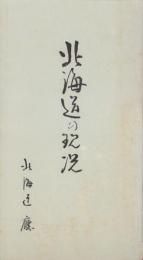 北海道の現况
北海道廳